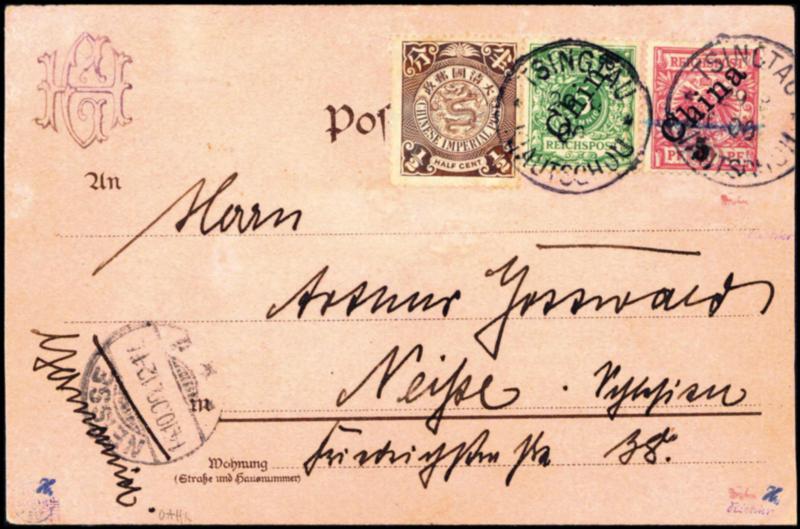 分半
政郵國清大
CHINESE IMPERIAL POST
HALF CENT
½ ½
TSINGTAU
KIAUTSCHOU
China
REICHSPOST
REICHSPOST
China
TSINGTAU
KIAUTSCHOU
Pos
An
Herrn
Arthur Gottwald
Neiße. Schlesien
in
Friedrichstraße 38.
Wohnung
(Straße und Hausnummer)
NEISSE